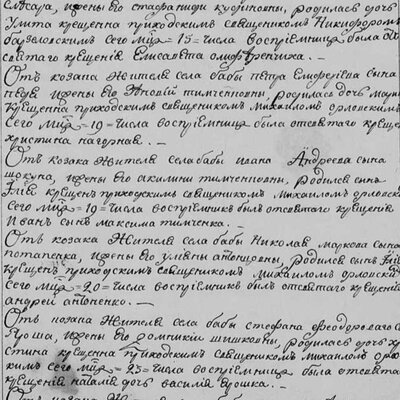 Улита крещенна приходскимъ священикомъ Никифоромъ
сего мца = 15 = числа воспріемница была отъ
святаго крещенія Елисавета
Отъ козака жителя села бабы петра сына
жены его тимченновни, родилась дочь
крещенна приходскимъ священикомъ михаиломъ орловскимъ
сего мца = 19 = числа воспріемница была отсвятаго крещенія
христина нагорная. —
Отъ козака жителя села бабы ивана Андреева сына
жены его акилини тимченновни, Родился сынъ
Іліе крещенъ приходскимъ священикомъ михаиломъ орловскимъ
сего мца = 19 = числа воспріемникъ былъ отсвятаго крещенія
Иванъ сынъ максима тимченка. —
Отъ козака жителя села бабы Николая маркова сына
потапенка, жены его уляны антоновны, Родился сынъ Іліе
крещенъ приходскимъ священикомъ михаиломъ орловским
сего мца = 20 = числа воспріемникъ былъ отсвятаго крещенія
андрей антоненко. —
Отъ козака жителя села бабы стефана феодорова
Яроша, жены его домникіи шишковны, родилась дочь хри
стина крещенна приходскимъ священикомъ михаиломъ орлов
кимъ сего мца = 25 = числа воспріемница была отсвятаго
крещенія наталія дочь василія